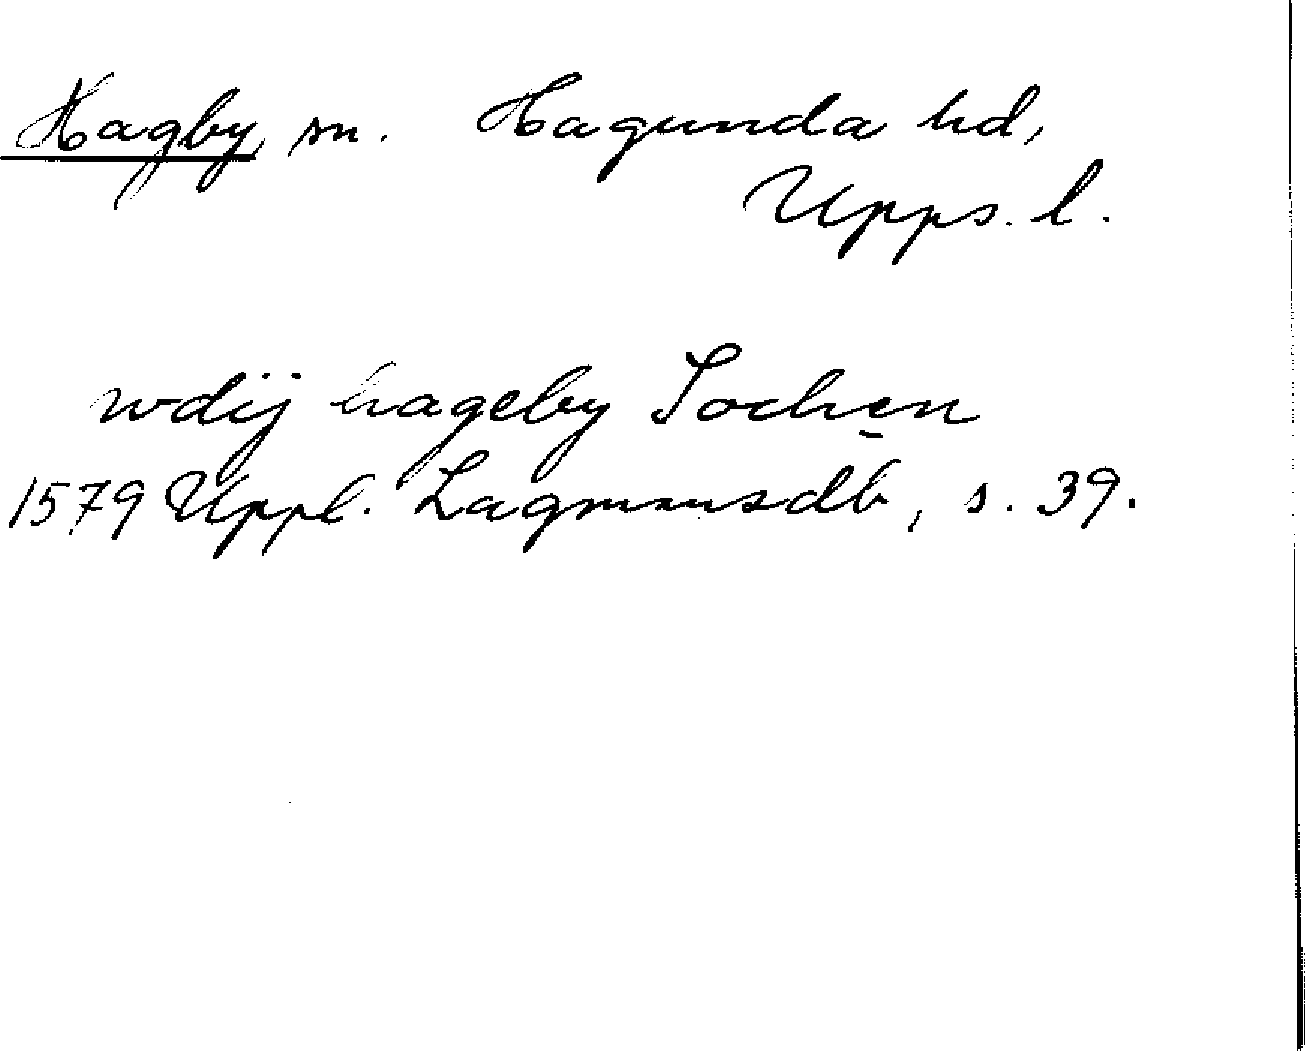 Hagby sn. Hagunda hd,
Upps. l.
wdij hageby Sochen
1579 Uppl. Lagmansdb, s. 39.